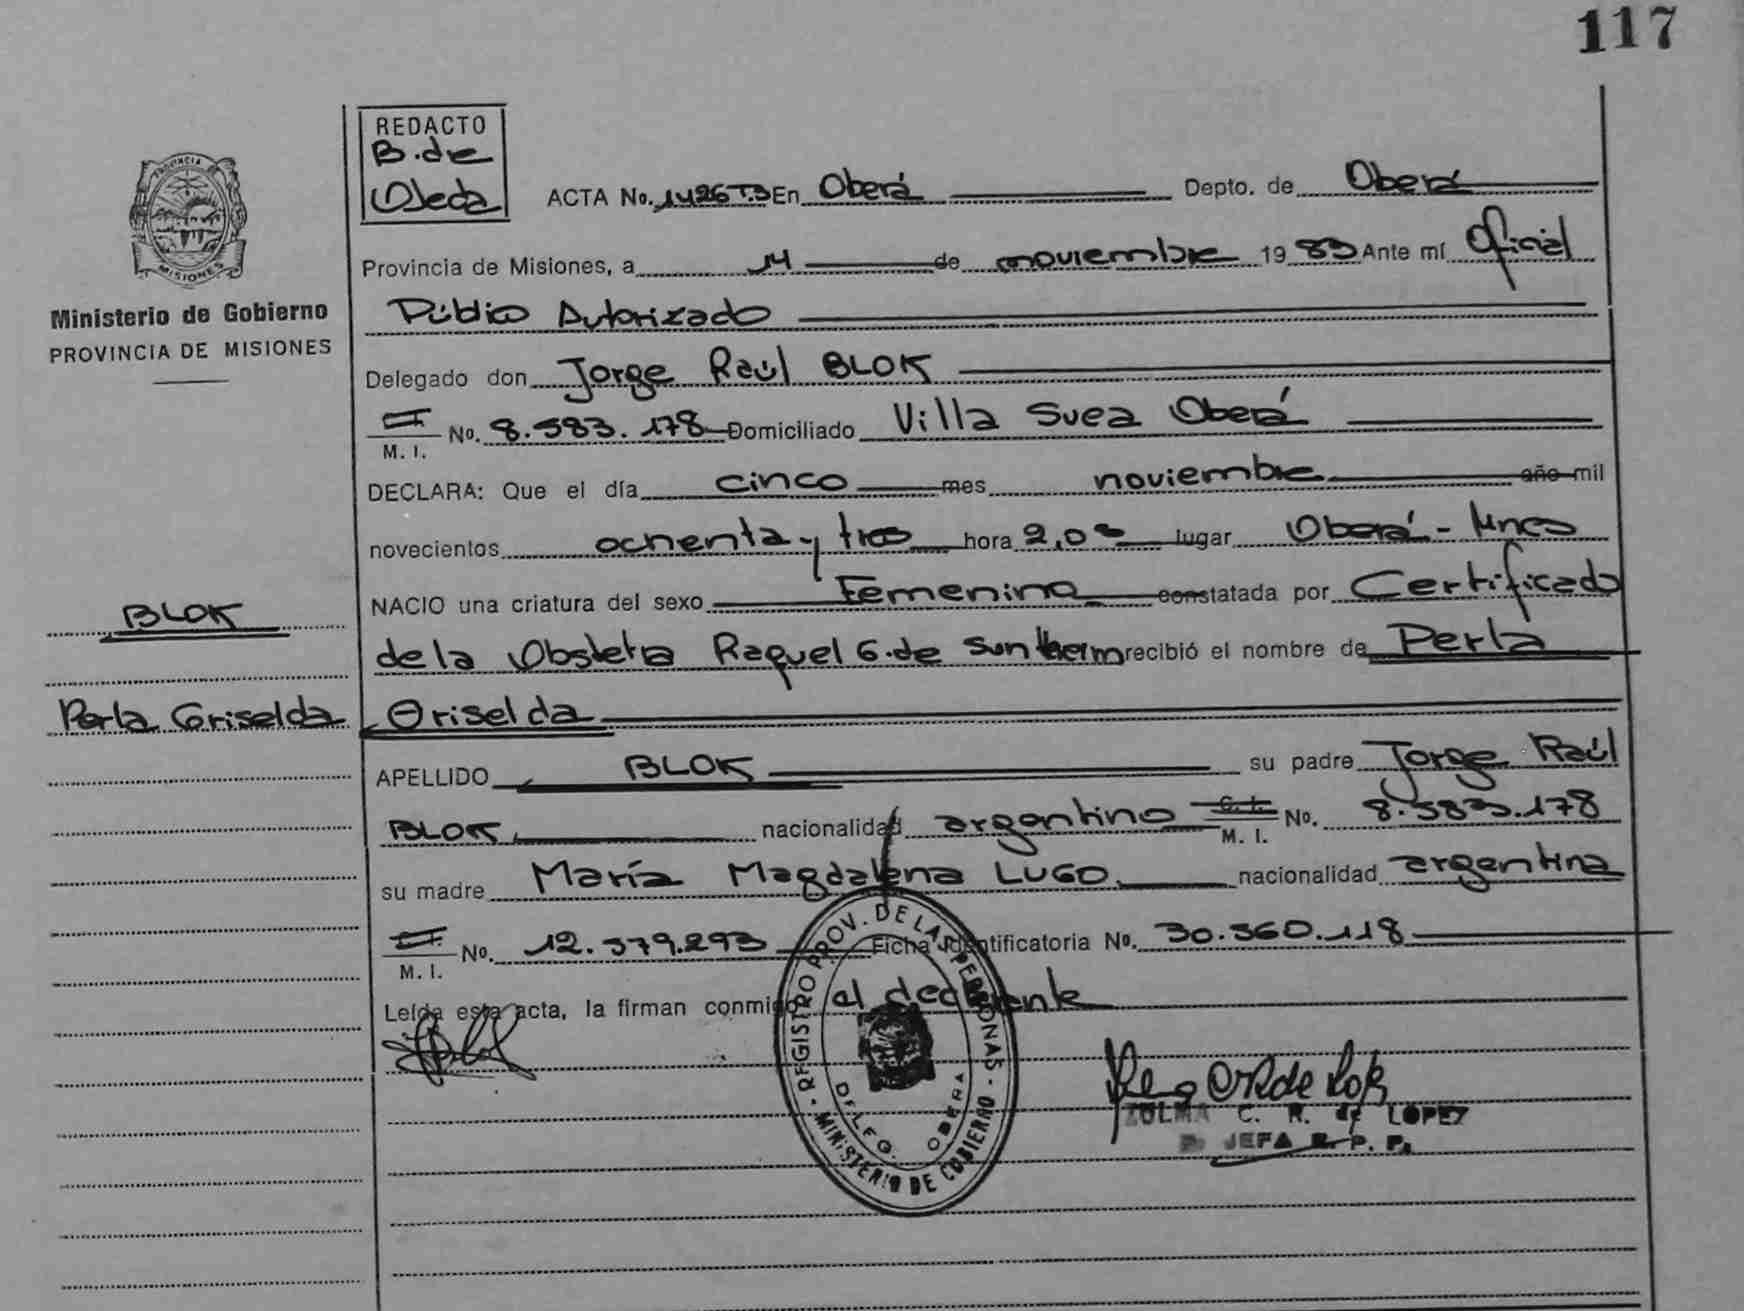 117
REDACTO
B. de
Ojeda
PROVINCIA DE
MISIONES
Ministerio de Gobierno
PROVINCIA DE MISIONES
ACTA No. 1426 T.3 En Oberá Depto. de Oberá
Provincia de Misiones, a 14 de noviembre 19 83 Ante mí Oficial
Público Autorizado
Delegado don Jorge Raúl BLOK
M. I. No. 8.583.178 Domiciliado Villa Svea Oberá
DECLARA: Que el día cinco mes noviembre año mil
novecientos ochenta y tres hora 2,00 lugar Oberá - Mnes
NACIO una criatura del sexo Femenino constatada por Certificado
de la Obstetra Raquel G. de recibió el nombre de Perla
Griselda
BLOK
Perla Griselda
APELLIDO BLOK su padre Jorge Raúl
BLOK, nacionalidad argentino C. I. M. I. No. 8.583.178
su madre María Magdalena LUGO, nacionalidad argentina
M. I. No. 12.379.293 Ficha Identificatoria No. 30.360.118
Leída esta acta, la firman conmigo el declarante
REGISTRO PROV. DE LAS PERSONAS - MINISTERIO DE GOBIERNO -
DELEG. OBERA
ZULMA C. R. de LOPEZ
JEFA R. P. P.